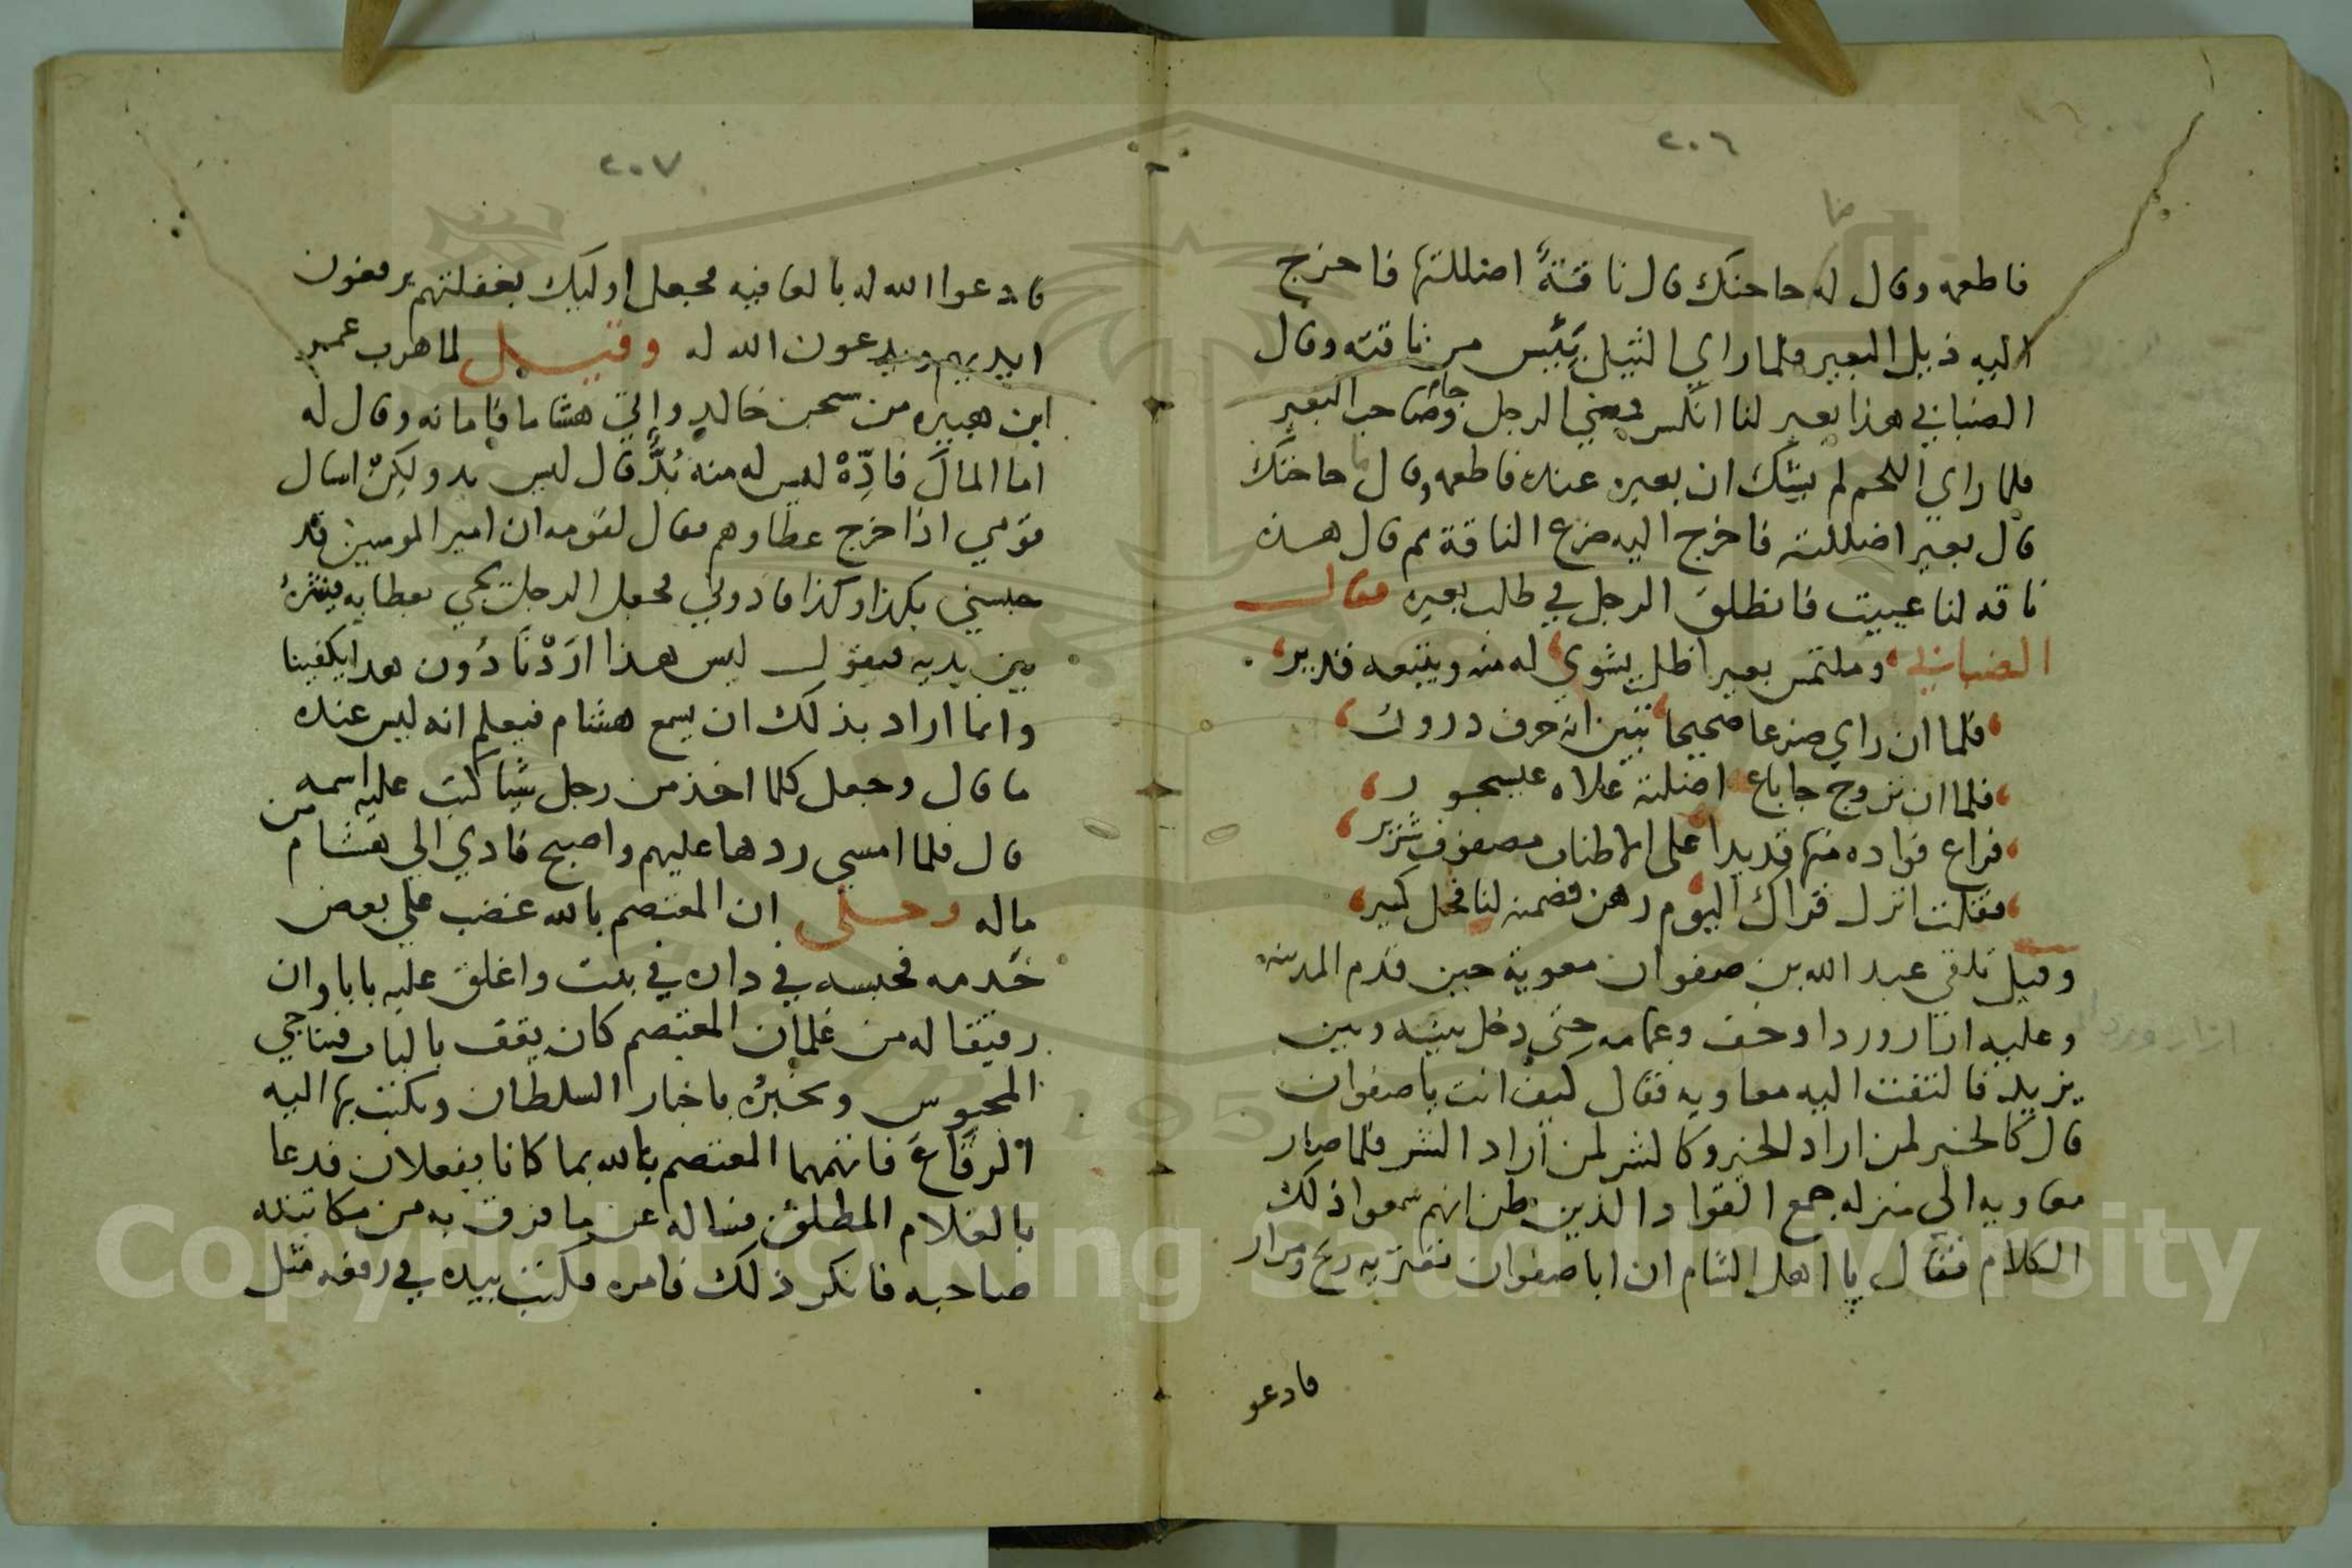 ٢٠٦
فاطعمه وقال له حاجتك قال ناقةٌ اضللتها فاخرج
اليه ذيل البعير فلما راي الثيل يَئِس من ناقته وقال
الضبابي هذا بعير لنا انكسر فمضي الرجل وجا صاحب البعير
فلما راي اللحم لم يشك ان بعيره عنده فاطعمه وقال ما حاجتك
قال بعير اضللته فاخرج اليه ضرع الناقة ثم قال هذه
ناقه لنا عييت فانطلق الرجل في طلب بعيره فقال
الضبابي وملتمس بعيرا ظل يشوي له منه ويتبعه قدير
فلما ان راي ضرعا صحيحا تبين انه حرف درور
فلما ان تزوح جا باع اضلته علاه عيسجور
فراع فواده منها قديدا على الاطناب مصفوف شزير
فقلت انزل قراك اليوم رهن فضمنه لنا فحل كبير
وقيل تلقي عبد الله بن صفوان معوية حين قدم المدينه
وعليه ازار وردا وخف وعمامه حتي دخل بينه وبين
يزيد فالتفت اليه معاويه فقال كيف انت يا صفوان
قال كالخير لمن اراد الخير وكالشر لمن اراد الشر فلما صار
معاويه الي منزله جمع القواد الذين ظن انهم سمعوا ذلك
الكلام فقال يا اهل الشام ان ابا صفوان تعتريه ريح ومرار
فادعو
ازار وردا
٢٠٧
فادعوا الله له بالعافيه فجعل اوليك بغفلتهم يرفعون
ايديهم ويدعون الله له وقيل لما هرب عمير
ابن هبيره من سجن خالد واتي هشاما فامانه وقال له
اما المالَ فادِّهْ ليس له منه بُدٌّ قال ليس بد ولكنْ اسال
قومي اذا خرج عطاوهم فقال لقومه ان امير المومنين قد
حبسني بكذا وكذا فادوني فجعل الرجل يجي بعطايه فينثرهُ
بين يديه فيقول ليس هذا ارَدْنَا دُون هدا يكفينا
وانما اراد بذلك ان يسمع هشام فيعلم انه ليس عنده
ما قال وجعل كلما اخذ من رجل شيا كتب عليه اسمه
قال فلما امسى ردها عليهم واصبح فادي الي هشام من
ماله وحكى ان المعتصم بالله غضب علي بعض
خَدمه فحبسه في داره في بيت واغلق عليه بابا وان
رفيقا له من غلمان المعتصم كان يقف بالباب فيناجي
المحبوس ويخبرُه باخبار السلطان ويكتب بها اليه
الرقَاعَ فاتهمهما المعتصم بالله بما كانا يفعلان فدعا
بالغلام المطلق فساله عن ما فرق به من مكاتبته
صاحبه فانكر ذلك فامره فكتب بيده في رقعه مثل
Copyright © King Saud University
195